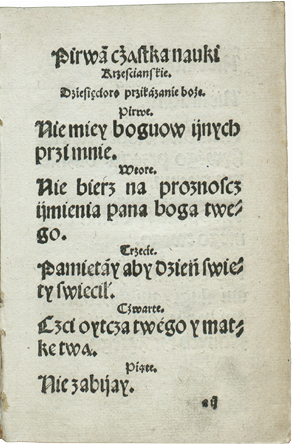 Pirwā cżastka nauki
Krzescianskie.
Dziesięcioro przikazanie boże.
Pirwe.
Nie miey boguow ijnych
przi mnie.
Wtore.
Nie bierz na proznoscz
ijmienia pana boga twe⸗
go.
Trzecie.
Pamietay aby dzień swie⸗
ty swiecil.
Czwarte.
Czci oytcza twégo y mat⸗
ke twa.
Piąte.
Nie zabijay.
aij